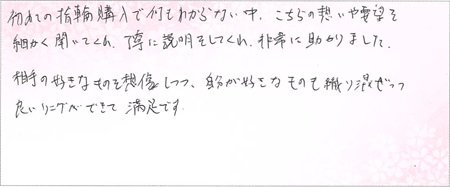 初めての指輪購入で何もわからない中、こちらの想いや要望を
細かく聞いてくれ、丁寧に説明をしてくれ、非常に助かりました。
相手の好きなものを想像しつつ、自分が好きなものも織り混ぜつつ
良いリングができて満足です。